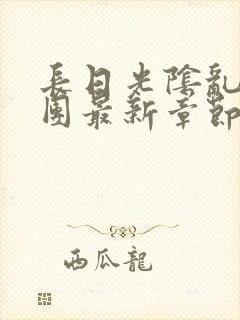 長日光陰亂
團最新章節
西瓜龍